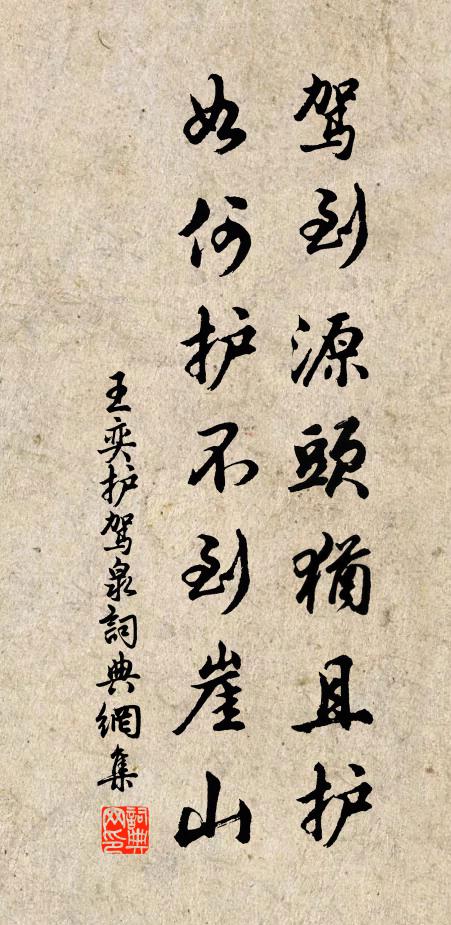 駕到源頭猶且护
如何护不到崖山
王奕护駕泉詞典網集
詞典网印